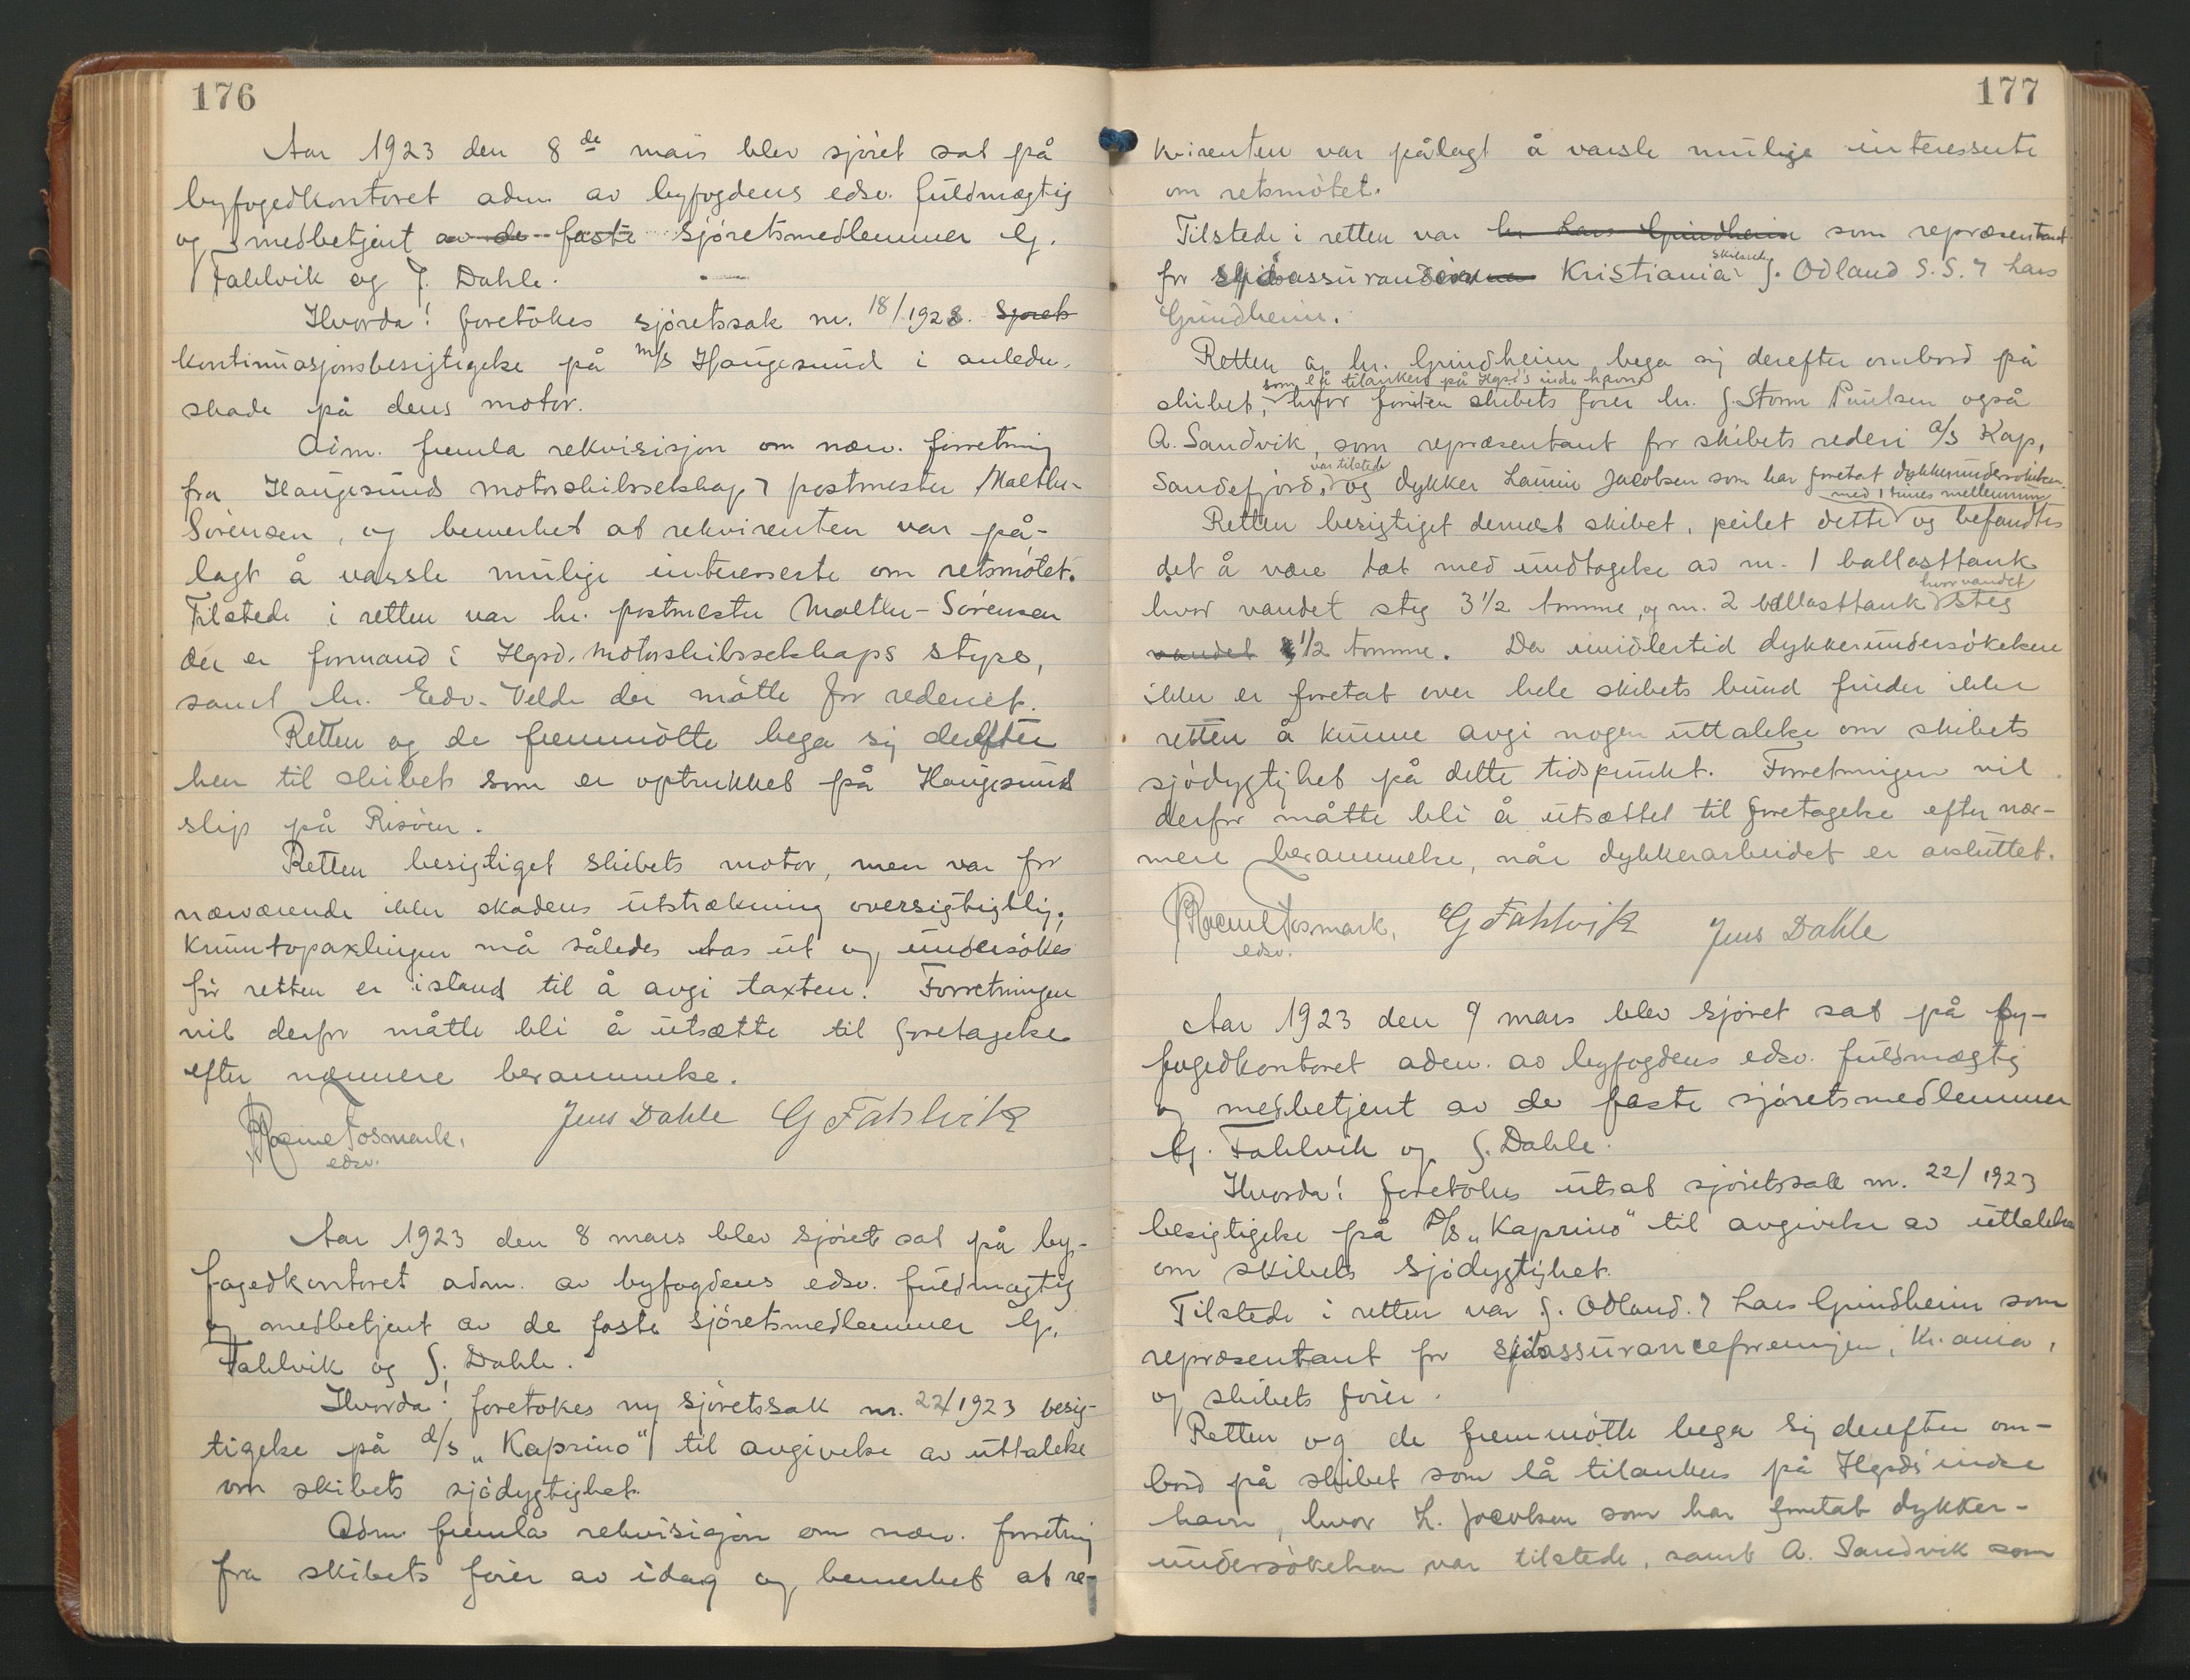 176
Aar 1923 den 8de mars blev sjöret sat på
byfogedkontoret adm. av byfogdens edsv. fuldmægtig
og medbetjent av de faste sjöretsmedlemmer G.
Fahlvik og J. Dahle.
Hvorda! foretokes sjöretssak nr. 18/1923. Sjöret
kontinuasjonsbesigtigelse på m/s Haugesund i anledn.
skade på dens motor.
Adm. fremla rekvisisjon om nærv. forretning
fra Haugesunds motorskibsselskap v postmester Malthe-
Sörensen, og bemerket at rekvirenten var på-
lagt å varsle mulige interesserte om retsmötet.
Tilstede i retten var hr. postmester Malthe-Sörensen
der er formand i Hgsd. motorskibsselskaps styre,
samt hr. Edv. Velde der mötte for rederiet.
Retten og de fremmötte bega sig derefter
hen til skibet som er optrukket på Haugesunds
slip på Risöen.
Retten besigtiget skibets motor, men var for
nærværende ikke skadens utstrækning oversigtligtlig;
krumtapaxlingen må således tas ut og undersökes
för retten er istand til å avgi taxten. Forretningen
vil derfor måtte bli å utsætte til foretagelse
efter nærmere berammelse.
Fosmark, Jens Dahle G Fahlvik
edsv.
Aar 1923 den 8 mars blev sjöret sat på by-
fogedkontoret adm. av byfogdens edsv. fuldmægtig
og medbetjent av de faste sjöretsmedlemmer G.
Fahlvik og J. Dahle.
Hvorda! foretokes ny sjöretssak nr. 22/1923 besig-
tigelse på d/s „Kaprino“ til avgivelse av uttalelse
om skibets sjödygtighet.
Adm fremla rekvisisjon om nærv. forretning
fra skibets förer av idag og bemerket at re-
177
kvirenten var pålagt å varsle mulige interesserte
om retsmötet.
Tilstede i retten var hr Lars Grindheim som repræsentant
for skibsassurance Kristiania J. Odland S.S. v Lars
Grindheim.
Retten og hr. Grindheim bega sig derefter ombord på
som lå tilankers på Hgsd's indre havn
skibet, hvor foruten skibets förer hr. J. Storm Paulsen også
A. Sandvik, som repræsentant for skibets rederi a/s Kap,
var tilstede
Sandefjord, og dykker Laurin Jacobsen som har foretat dykkerundersökelsen.
med 1 times mellemrum
Retten besigtiget dernæst skibet, peilet dette og befandtes
det å være tæt med undtagelse av nr. 1 ballasttank
hvor vandet
hvor vandet steg 3 1/2 tomme, og nr. 2 ballasttank steg
vandet 1/2 tomme. Da imidlertid dykkerundersökelsen
ikke er foretat over hele skibets bund finder ikke
retten å kunne avgi nogen uttalelse om skibets
sjödygtighet på dette tidspunkt. Forretningen vil
derfor måtte bli å utsættet til foretagelse efter nær-
mere berammelse, når dykkerarbeidet er avsluttet.
Fosmark, G Fahlvik Jens Dahle
edsv.
Aar 1923 den 9 mars blev sjöret sat på by-
fogedkontoret adm. av byfogdens edsv. fuldmægtig
og medbetjent av de faste sjöretsmedlemmer
G. Fahlvik og J. Dahle.
Hvorda! foretokes utsat sjöretssak nr. 22/1923
besigtigelse på D/s „Kaprino“ til avgivelse av uttalelse
om skibets sjödygtighet.
Tilstede i retten var J. Odland. v Lars Grindheim som
repræsentant for skibsassuranceforeningen, Kr.ania,
og skibets förer.
Retten og de fremmötte bega sig derefter om-
bord på skibet som lå tilankers på Hgsds indre
havn, hvor L. Jacobsen som har foretat dykker-
undersökelsen var tilstede, samt A. Sandvik som